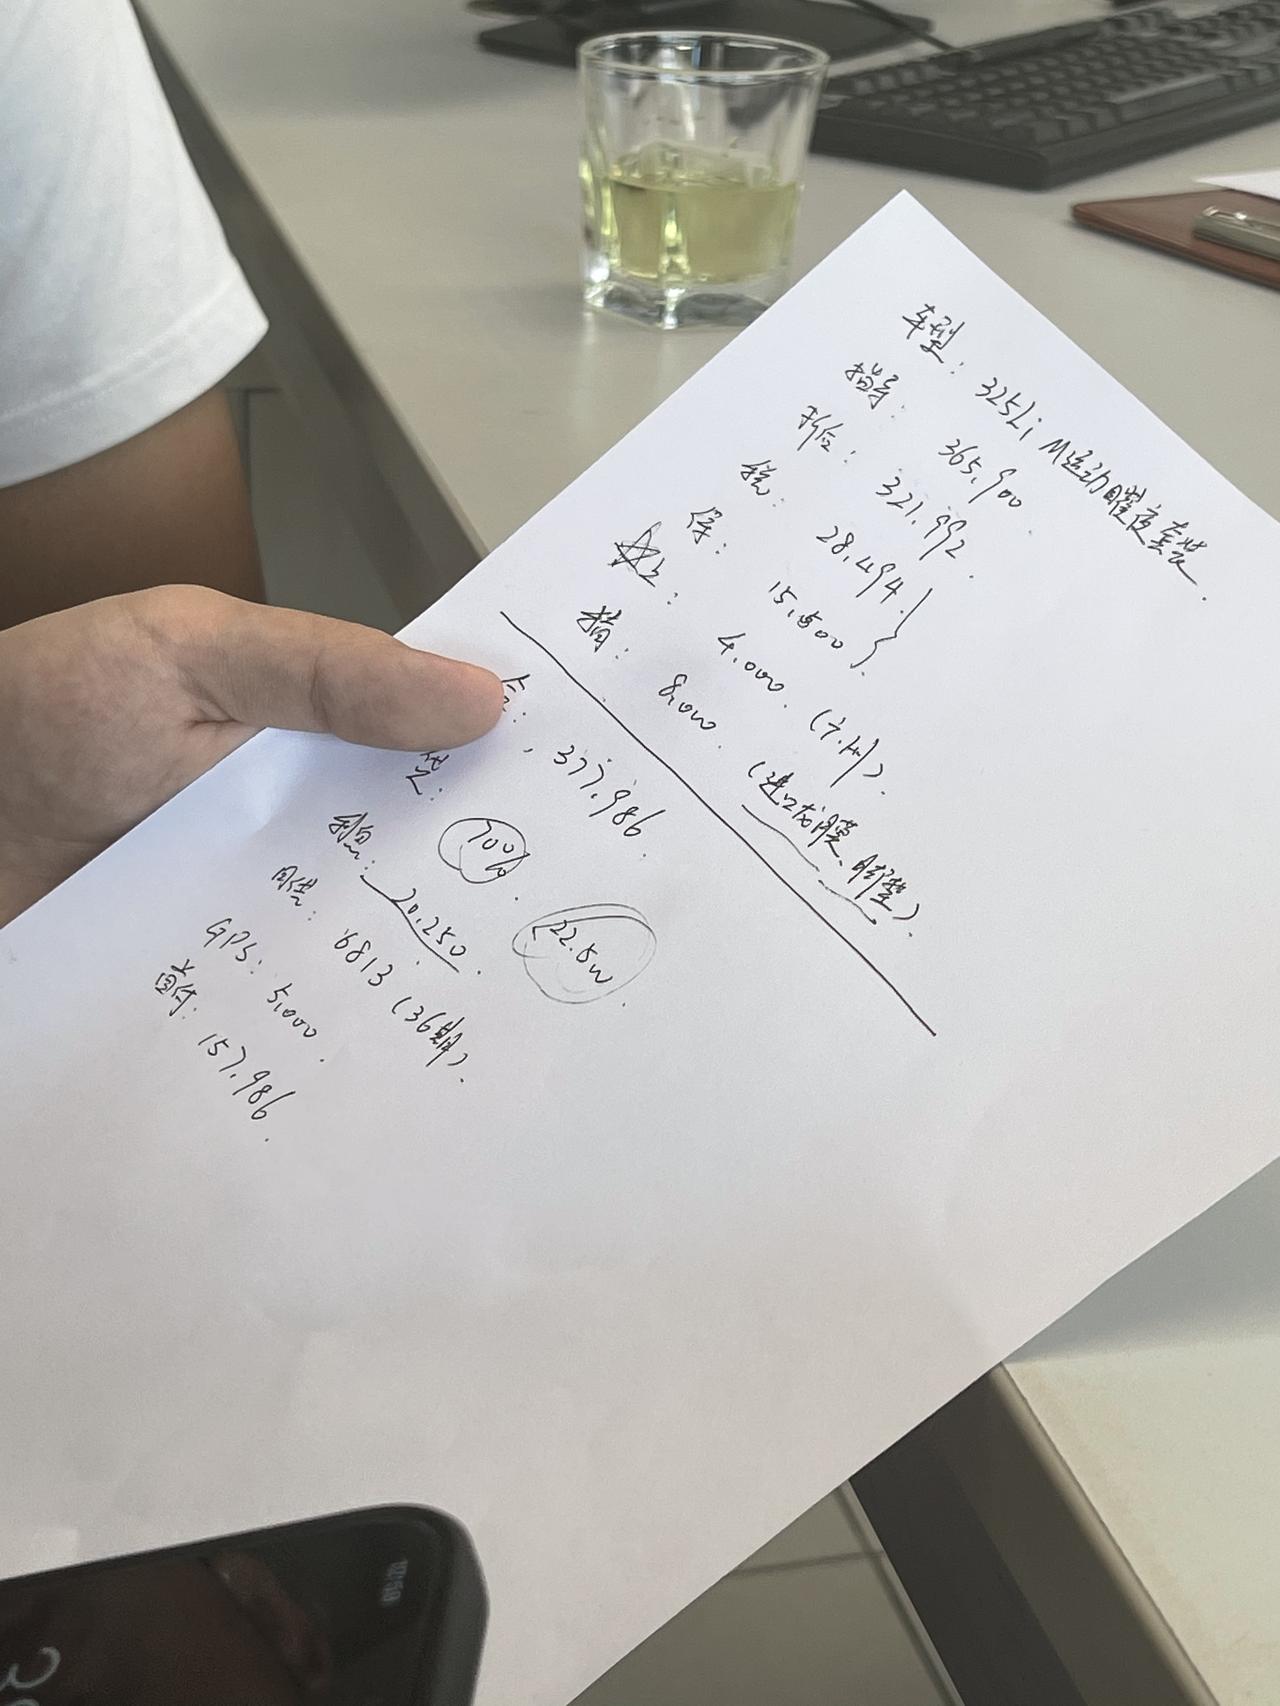 车型: 325Li M运动曜夜套装.
指导: 365.900
折后: 321.992.
税: 28.494.
保: 15.500
上: 4.000.
精: 8.000. (进口龙膜、脚垫).
合: 377.986.
贷: 70%. 22.5w.
利息: 20.250.
月供: 6813 (36期).
GPS: 5.000.
首付: 157.986.